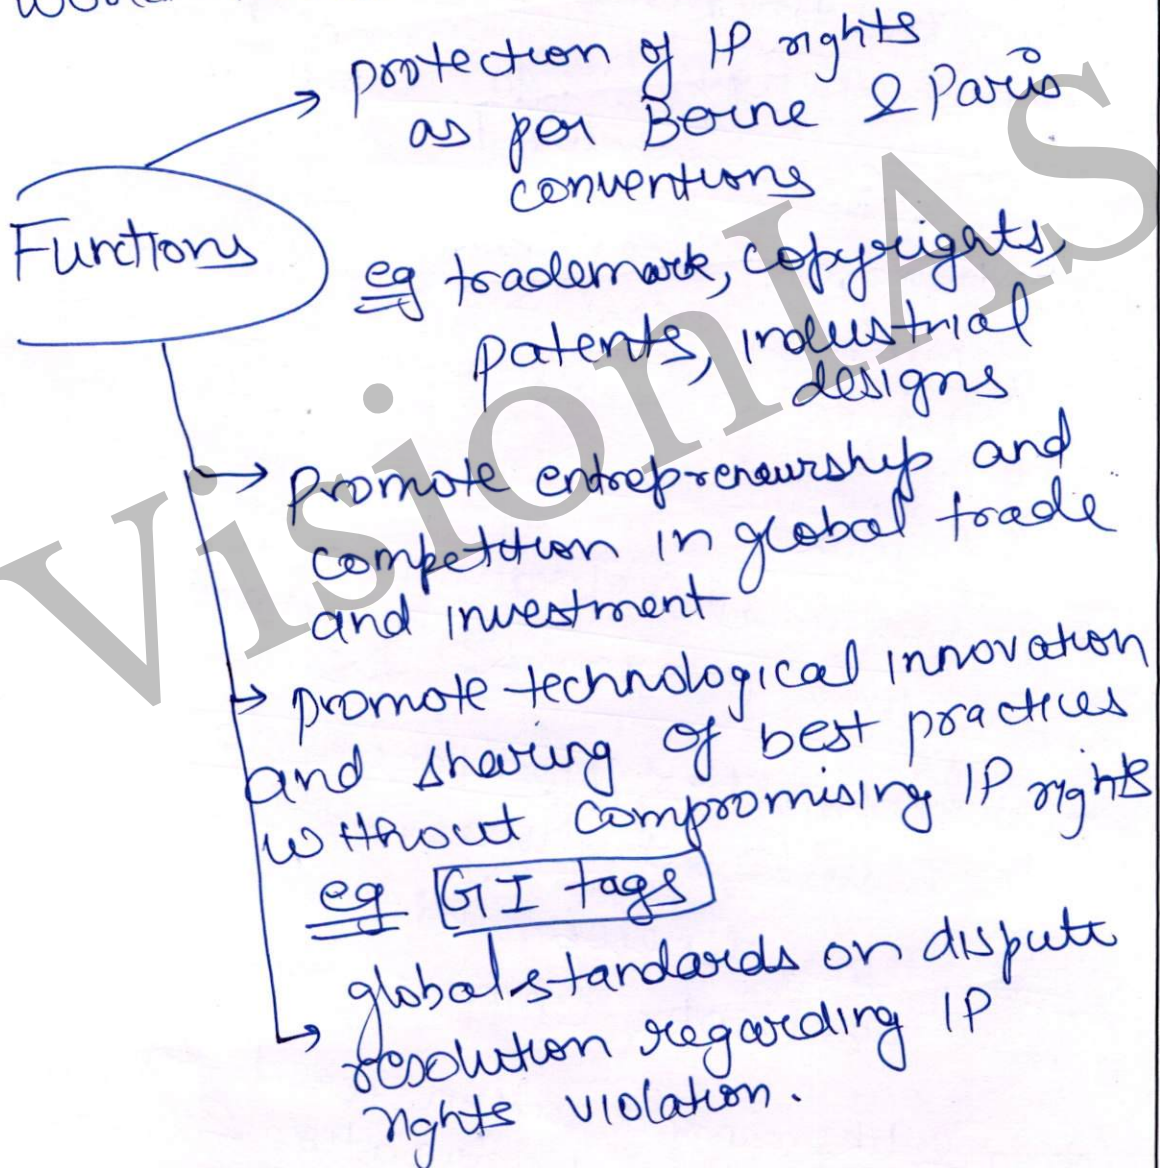 protection of IP rights
as per Berne & Paris
conventions
Functions
eg trademark, copyrights,
patents, industrial
designs
promote entrepreneurship and
competition in global trade
and investment
promote technological innovation
and sharing of best practices
without compromising IP rights
eg GI tags
global standards on dispute
resolution regarding IP
rights violation.
VisionIAS